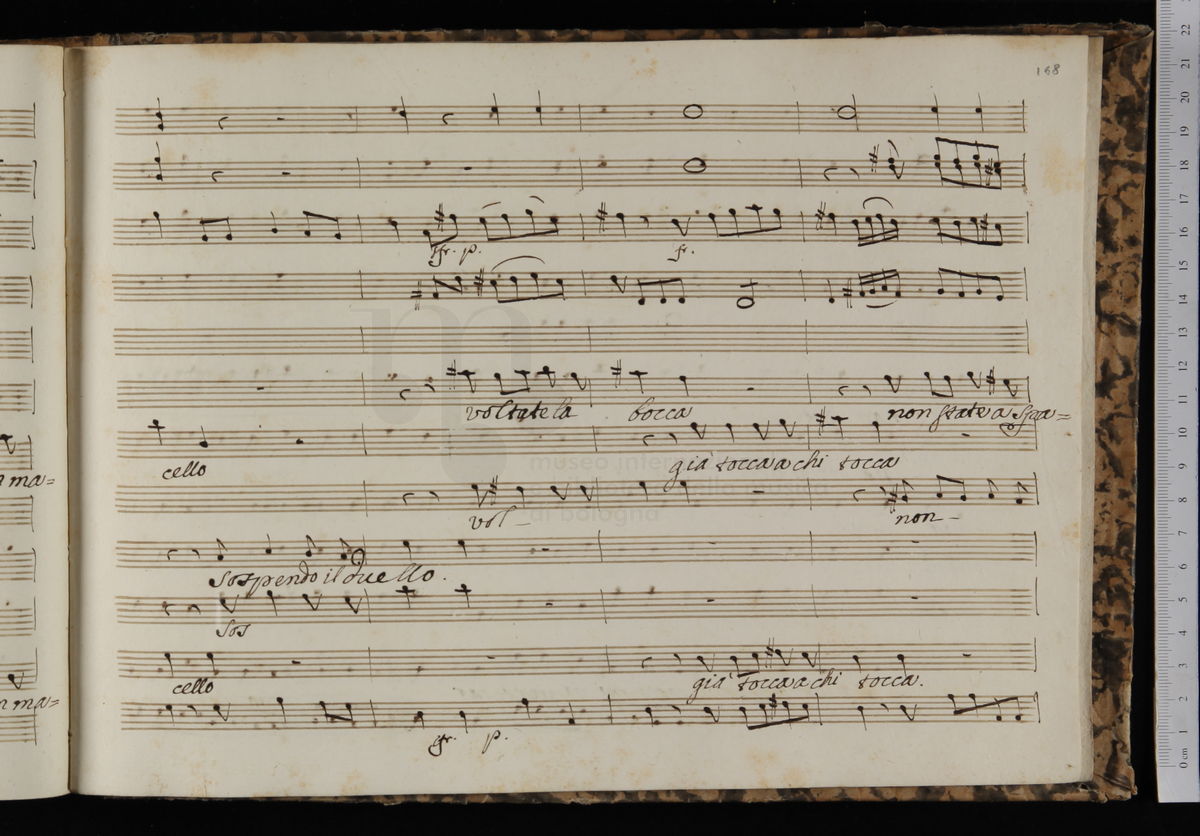 168
fr. p.
fr.
voltate la bocca non state a spa=
n ma=
cello già tocca a chi tocca
vol- non-
sospendo il duello.
sos
cello già tocca a chi tocca.
n ma=
fr. p.
museo inter
di bologna
0 cm 1 2 3 4 5 6 7 8 9 10 11 12 13 14 15 16 17 18 19 20 21 22